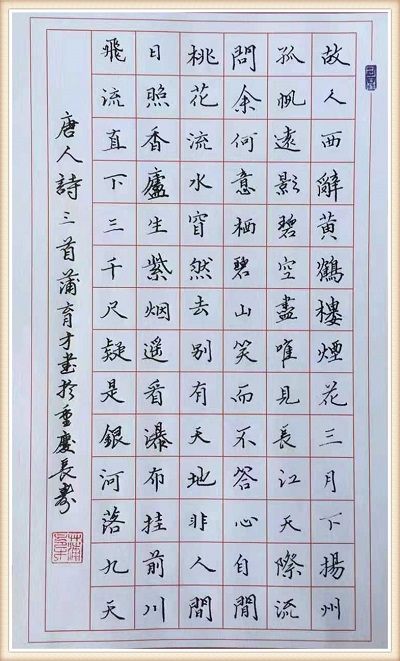 故人西辭黃鶴樓煙花三月下揚州
孤帆遠影碧空盡唯見長江天際流
問余何意栖碧山笑而不答心自閒
桃花流水窅然去別有天地非人間
日照香廬生紫烟遙看瀑布挂前川
飛流直下三千尺疑是銀河落九天
唐人詩三首蒲育才書於重慶長壽